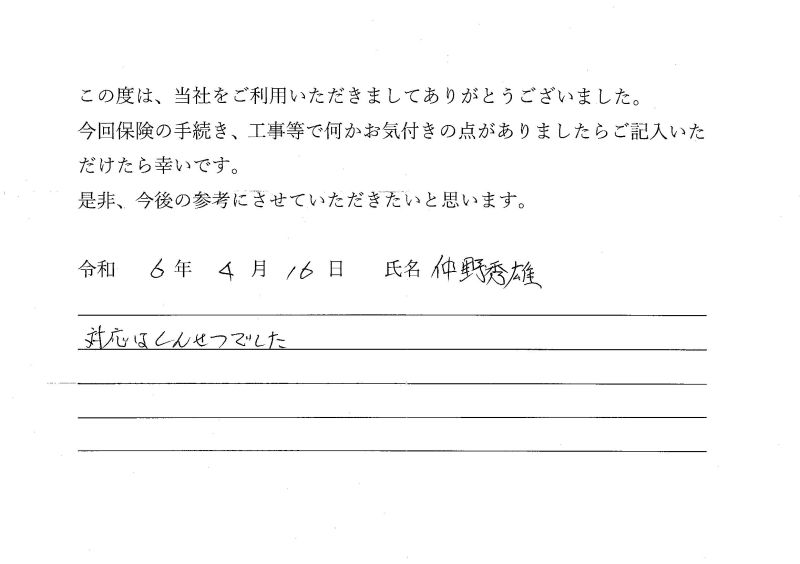 この度は、当社をご利用いただきましてありがとうございました。
今回保険の手続き、工事等で何かお気付きの点がありましたらご記入いた
だけたら幸いです。
是非、今後の参考にさせていただきたいと思います。
令和 6 年 4 月 16 日 氏名 仲野秀雄
対応はしんせつでした